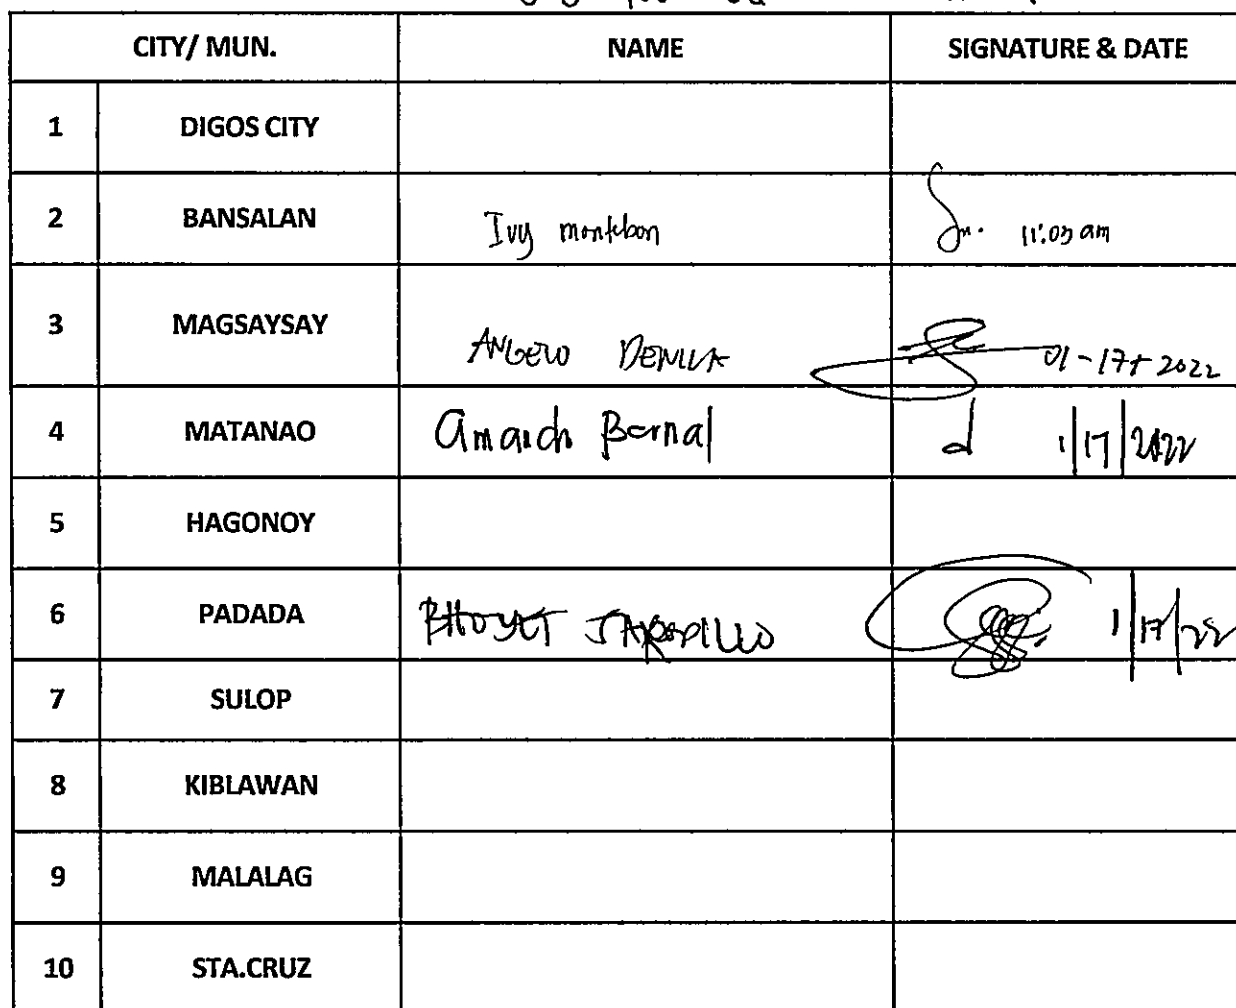 CITY/ MUN. NAME SIGNATURE & DATE
1 DIGOS CITY
2 BANSALAN Ivy montebon 11:03 am
3 MAGSAYSAY ANGELO 01-17-2022
4 MATANAO Bernal 1/17/2022
5 HAGONOY
6 PADADA 1/17/22
7 SULOP
8 KIBLAWAN
9 MALALAG
10 STA.CRUZ